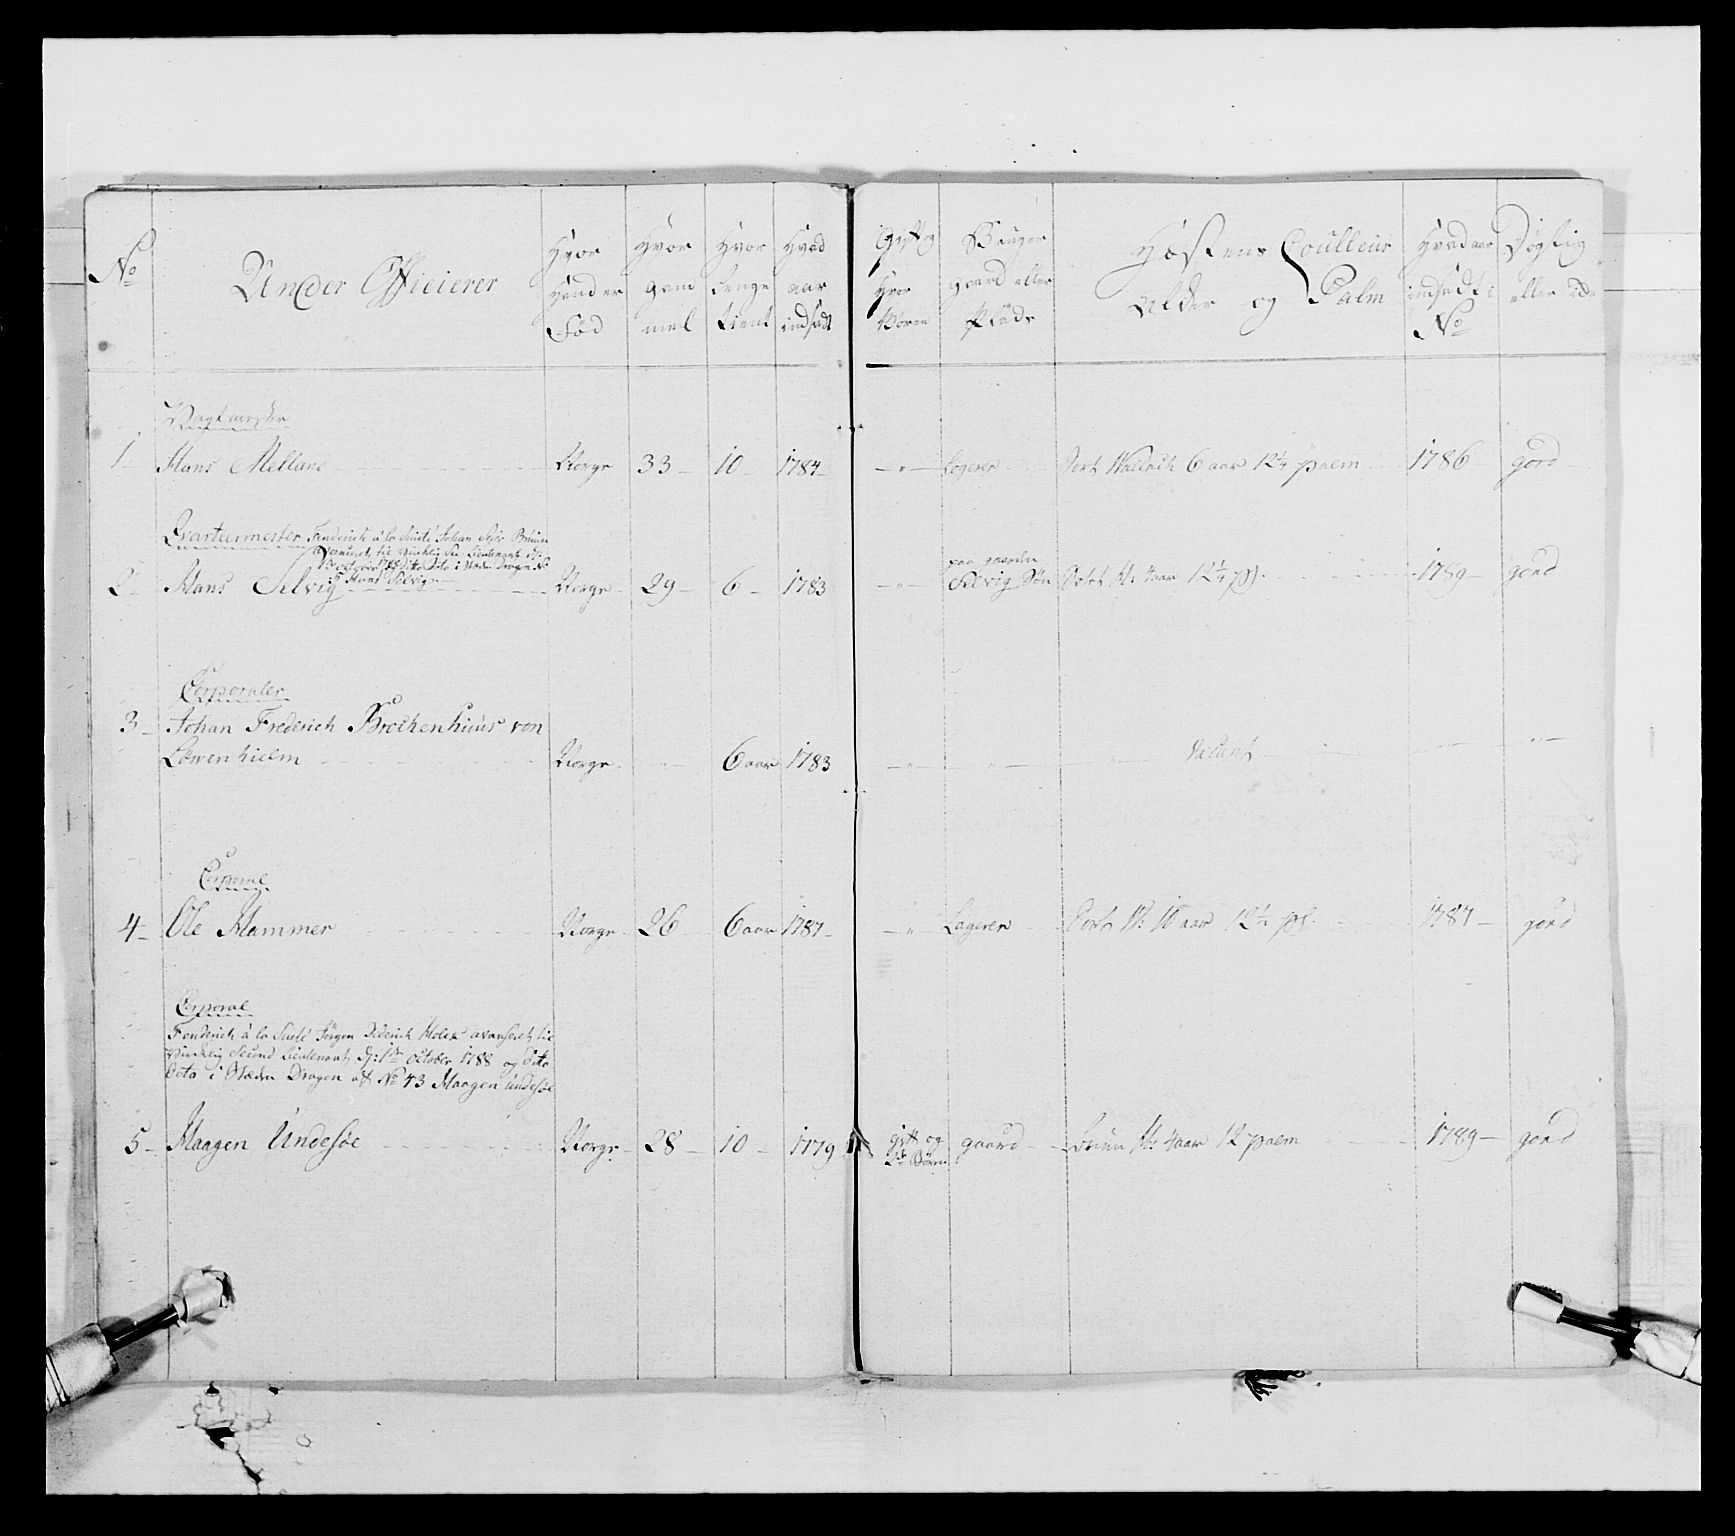 No
Under Officierer
Hvor
Hand er
Fød
Hvor
gam
mel
Hvor
Lenge
tient
Hvad
aar
indsadt
Gift og
Hvor
Børen
Bruger
gaard eller
Plads
Hæstens Coulleur
Alder og Palm
Hvad aar
indsadt i
No
Dygtig
eller icke
Vagtmester
1 Hans Melland Norge 33 10 1784 Logerer Sort Wallach 6 aar 12¼ palm 1786 god
Qvarteermester Fenderich á la Suite Johan Bruun
til Lieutenant
Hans Selvig
paa gaarden
2 Hans Selvig Norge 29 6 1783 Selvig Søn Sort H: 4 aar 12¼ pl. 1789 god
Corporaler
3 Johan Frederich Brochenhuus von
Löwenhielm Norge 6 aar 1783 Vacant
Corporal
4 Ole Hammer Norge 26 6 aar 1787 Logerer 12½ pl. 1787 god
Corporal
Fenderich á la Suite Jørgen Diderich Holck avanseret til
Virkelig Second Lieutenant d: 1te October 1788 og dito
Dato i Stæden Dragon af No 43 Haagen Undesøe
5 Haagen Undesøe Norge 28 10 1779 gift og gaard Bruun H: 4 aar 12 palm 1789 god
2 Børn